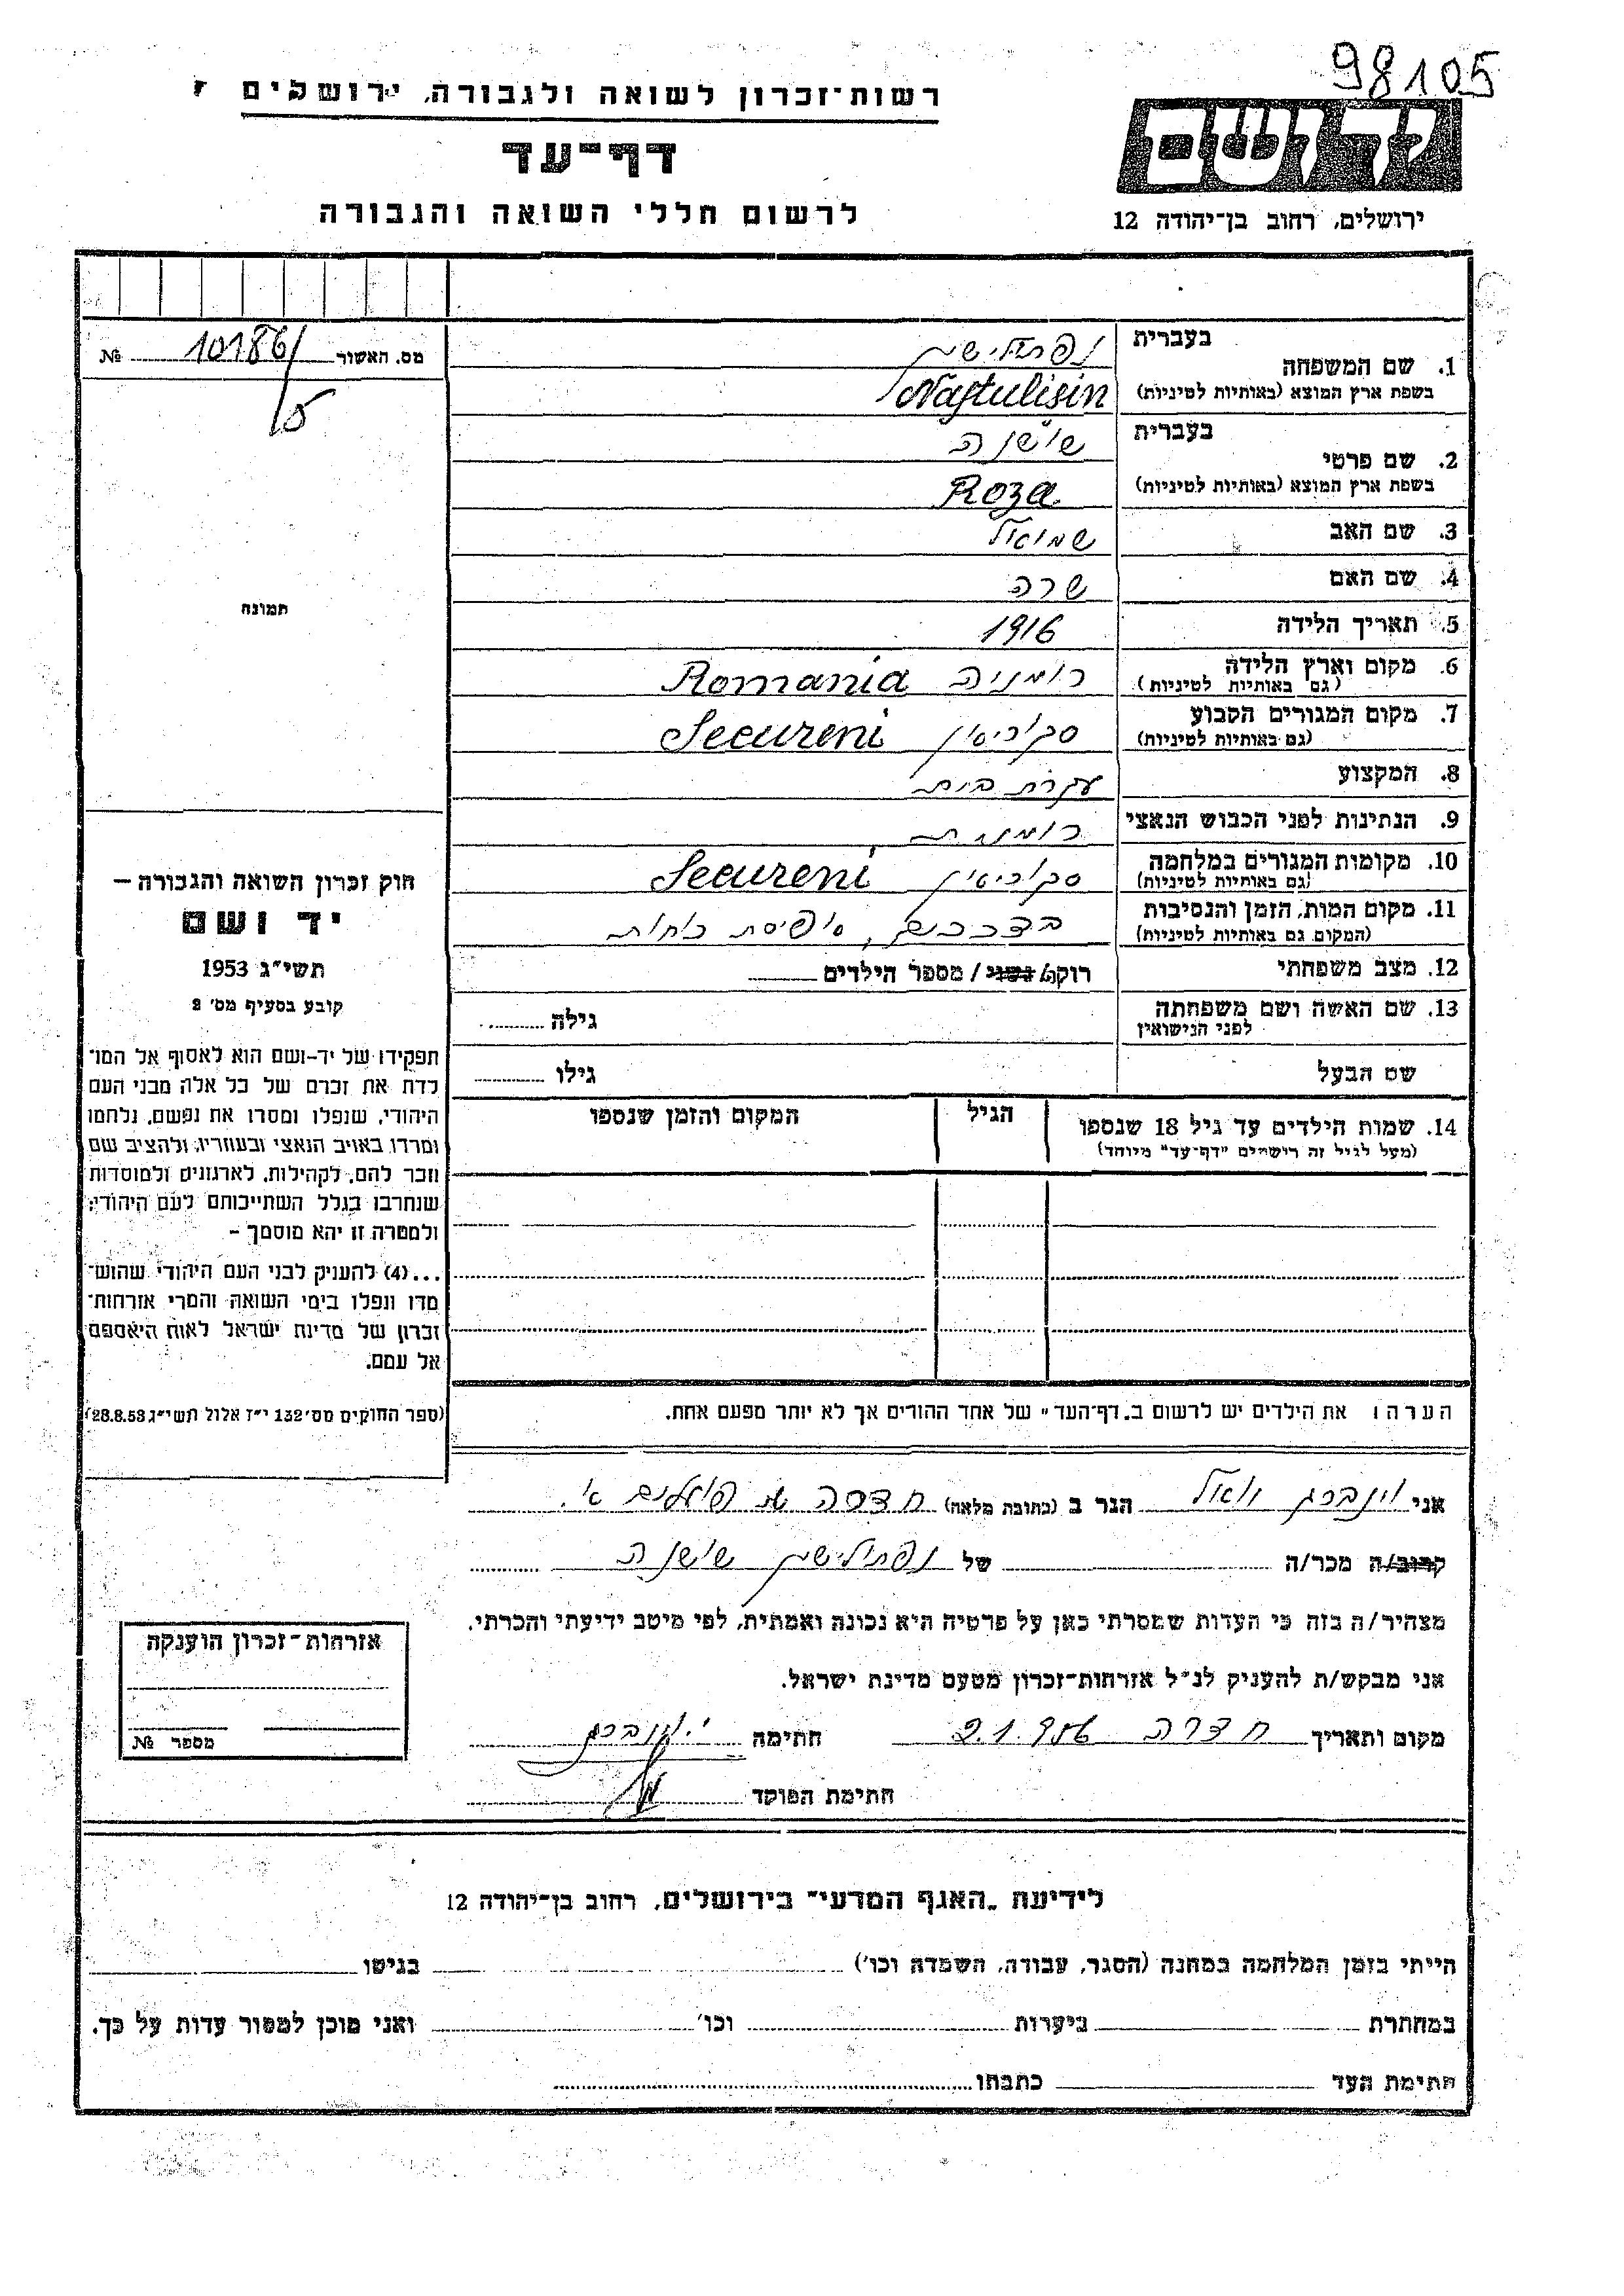 98105
רשות־זכרון לשואה ולגבורה, ירושלים
דף־עד
לרשום חללי השואה והגבורה
יד ושם
ירושלים, רחוב בן־יהודה 12
מס. האשור 10186/15 №
תמונה
1. שם המשפחה
בעברית נפתולישין
בשפת ארץ המוצא (באותיות לטיניות) Naftulisin
2. שם פרטי
בעברית שושנה
בשפת ארץ המוצא (באותיות לטיניות) Roza
3. שם האב שמואל
4. שם האם שרה
5. תאריך הלידה 1916
6. מקום וארץ הלידה רומניה Romania
(גם באותיות לטיניות)
7. מקום המגורים הקבוע Secureni
(גם באותיות לטיניות)
8. המקצוע עקרת בית
9. הנתינות לפני הכבוש הנאצי רומנית
10. מקומות המגורים במלחמה Secureni
(גם באותיות לטיניות)
11. מקום המות, הזמן והנסיבות בדרכים, אפיסת כוחות
(המקום גם באותיות לטיניות)
12. מצב משפחתי רוקה/נשוי / מספר הילדים
13. שם האשה ושם משפחתה גילה
לפני הנישואין
שם הבעל גילו
14. שמות הילדים עד גיל 18 שנספו הגיל המקום והזמן שנספו
(מעל לגיל זה רישמים "דף־עד" מיוחד)
הערה: את הילדים יש לרשום ב„דף־העד" של אחד ההורים אך לא יותר מפעם אחת.
חוק זכרון השואה והגבורה –
יד ושם
תשי"ג 1953
קובע בסעיף מס' 2
תפקידו של יד-ושם הוא לאסוף אל המו־
לדת את זכרם של כל אלה מבני העם
היהודי, שנפלו ומסרו את נפשם, נלחמו
ומרדו באויב הנאצי ובעוזריו, ולהציב שם
וזכר להם, לקהילות, לארגונים ולמוסדות
שנחרבו בגלל השתייכותם לעם היהודי;
ולמטרה זו יהא מוסמך –
...(4) להעניק לבני העם היהודי שהוש־
מדו ונפלו בימי השואה והמרי אזרחות־
זכרון של מדינת ישראל לאות היאספם
אל עמם.
(ספר החוקים מס' 132 י"ז אלול תשי"ג 28.8.53)
אני וינברג יואל הגר ב (כתובת מלאה) חדרה פועלים א'.
קרוב/ה מכר/ה של נפתולישין שושנה
מצהיר/ה בזה כי העדות שמסרתי כאן על פרטיה היא נכונה ואמתית, לפי מיטב ידיעתי והכרתי.
אני מבקש/ת להעניק לנ"ל אזרחות־זכרון מטעם מדינת ישראל.
מקום ותאריך חדרה 9.1.956 חתימה י. וינברג
חתימת הפוקד
אזרחות־זכרון הוענקה
מספר №
לידיעת „האגף המדעי" בירושלים, רחוב בן־יהודה 12
הייתי בזמן המלחמה במחנה (הסגר, עבודה, השמדה וכו') בגיטו
במחתרת ביערות וכו' ואני מוכן למסור עדות על כך.
חתימת העד כתבתו